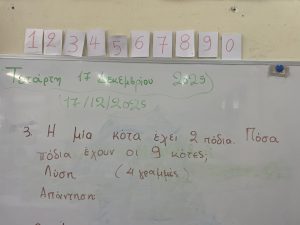 1 2 3 4 5 6 7 8 9 0
Τετάρτη 17 Δεκεμβρίου 2025
17/12/2025
3. Η μία κότα έχει 2 πόδια. Πόσα
πόδια έχουν οι 9 κότες;
Λύση (4 γραμμές)
Απάντηση